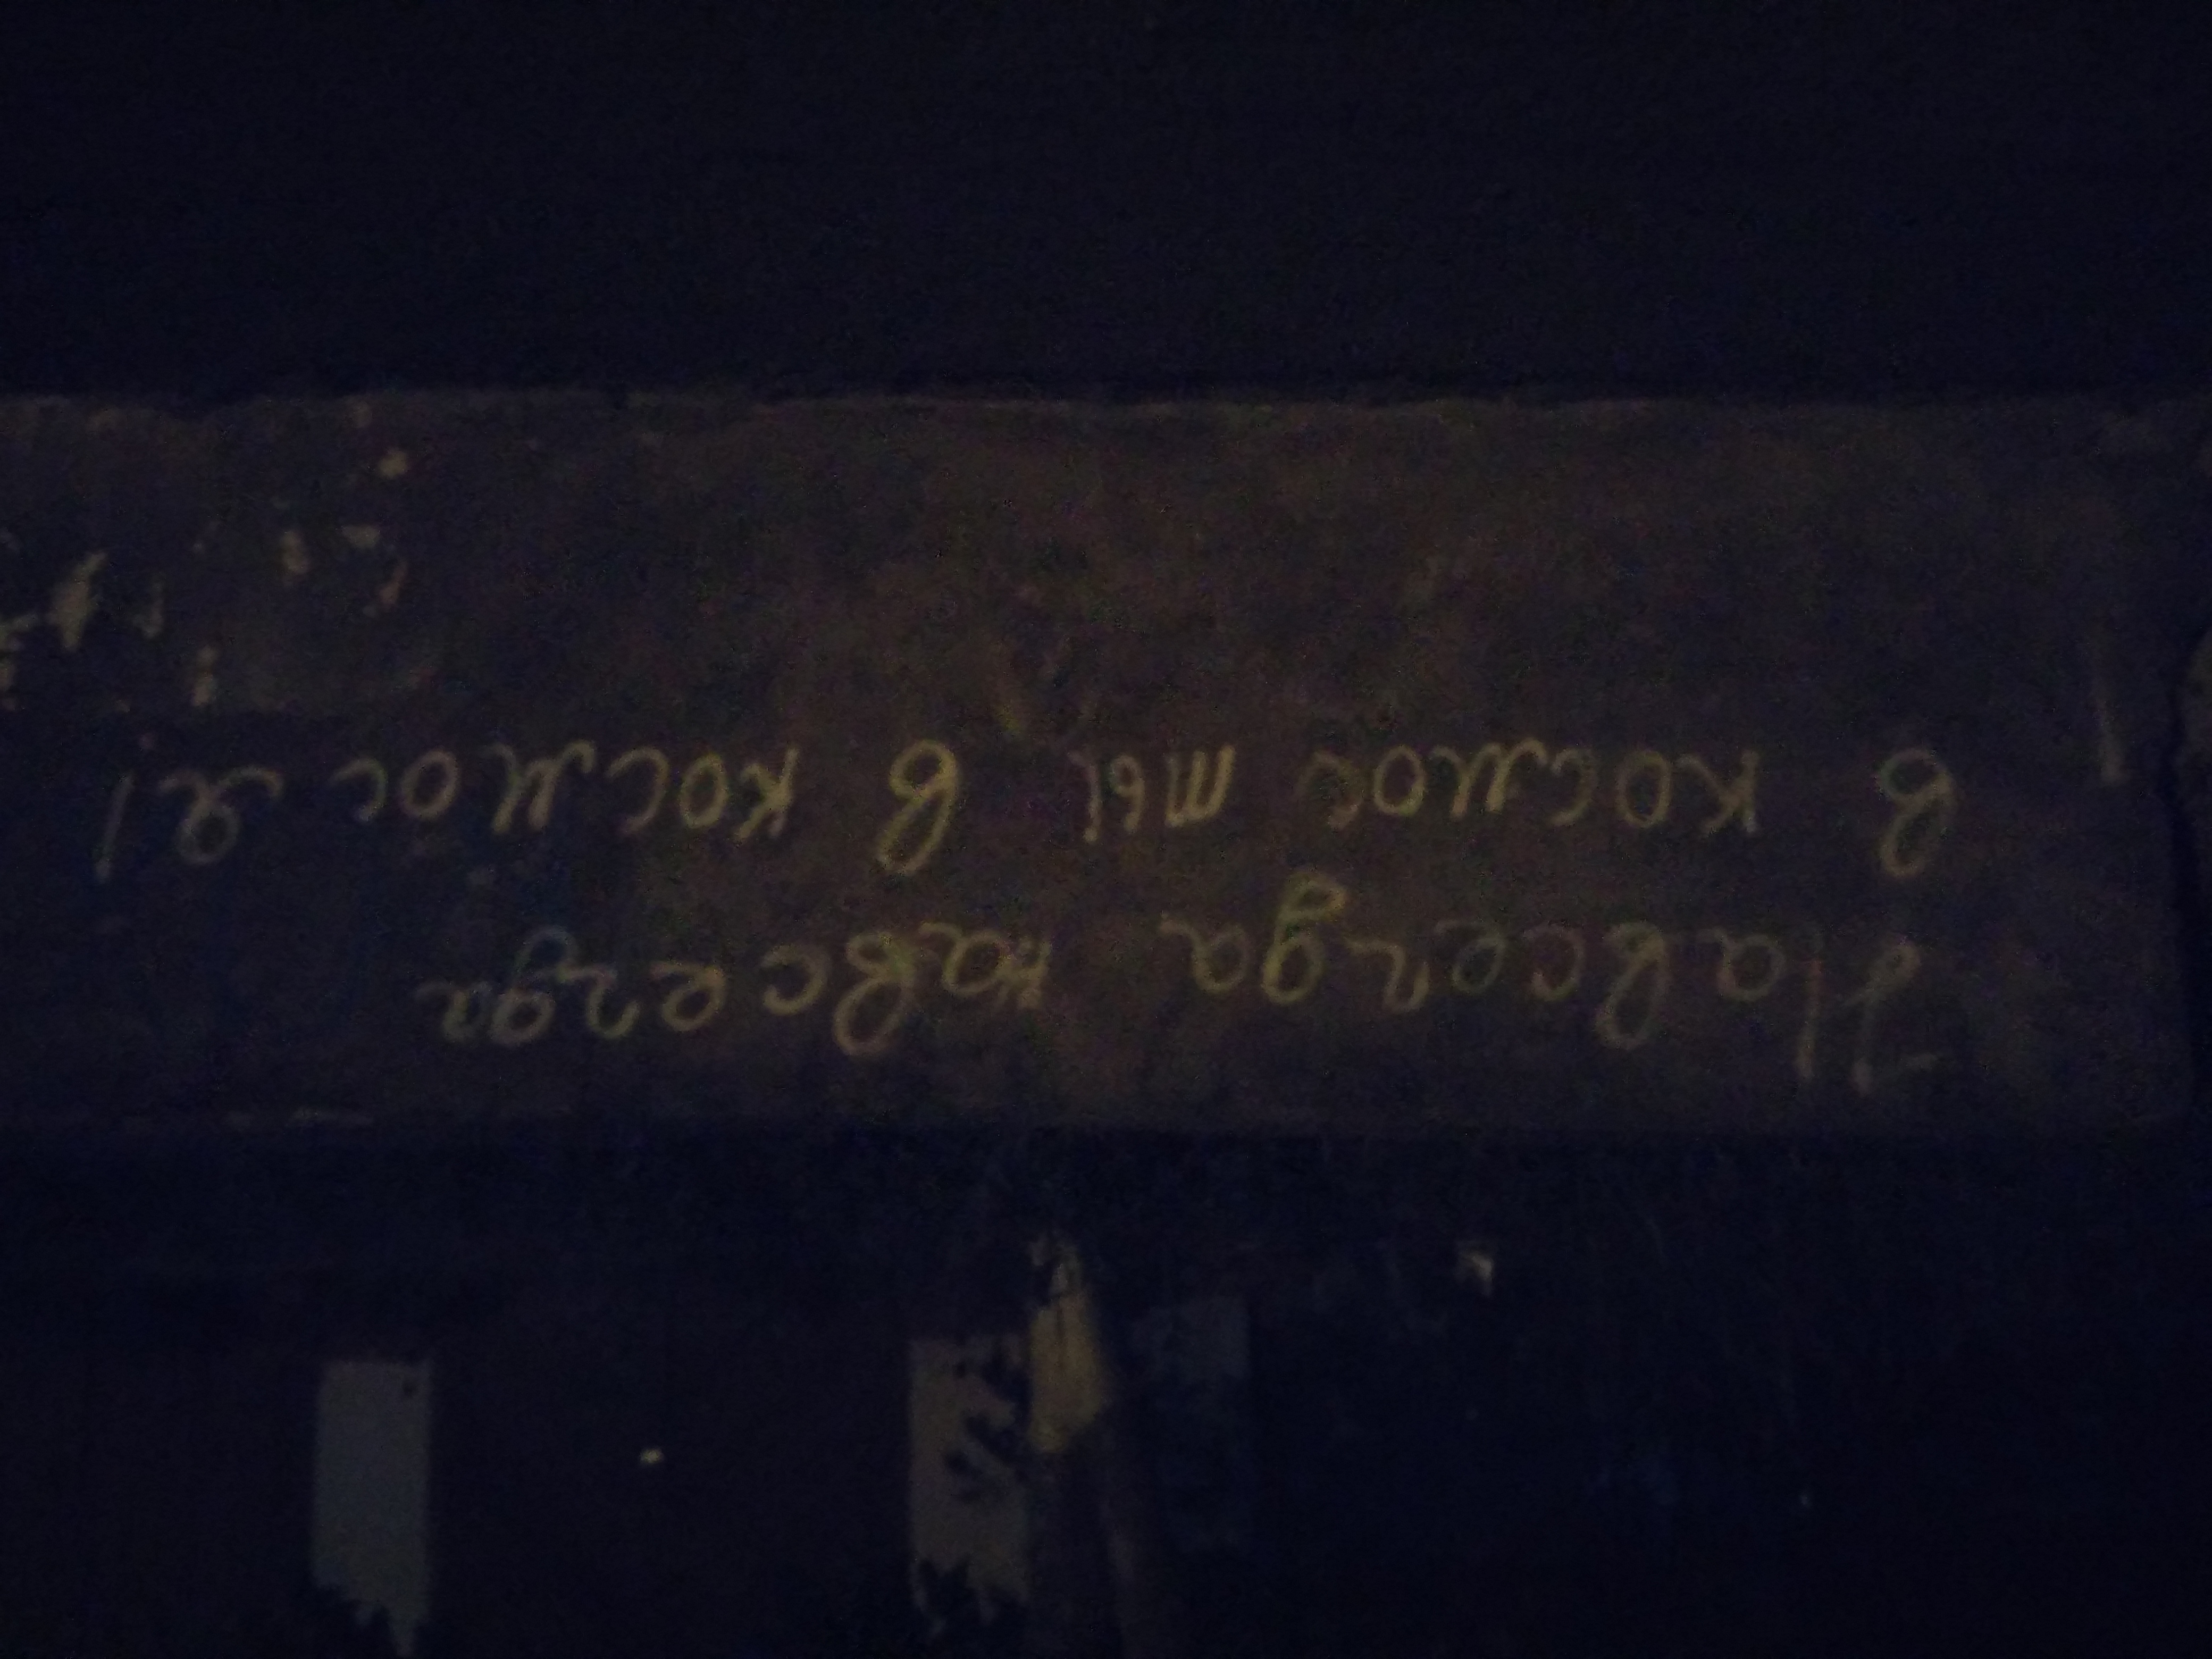 Навсегда навсегда
в космос ты в космос я!